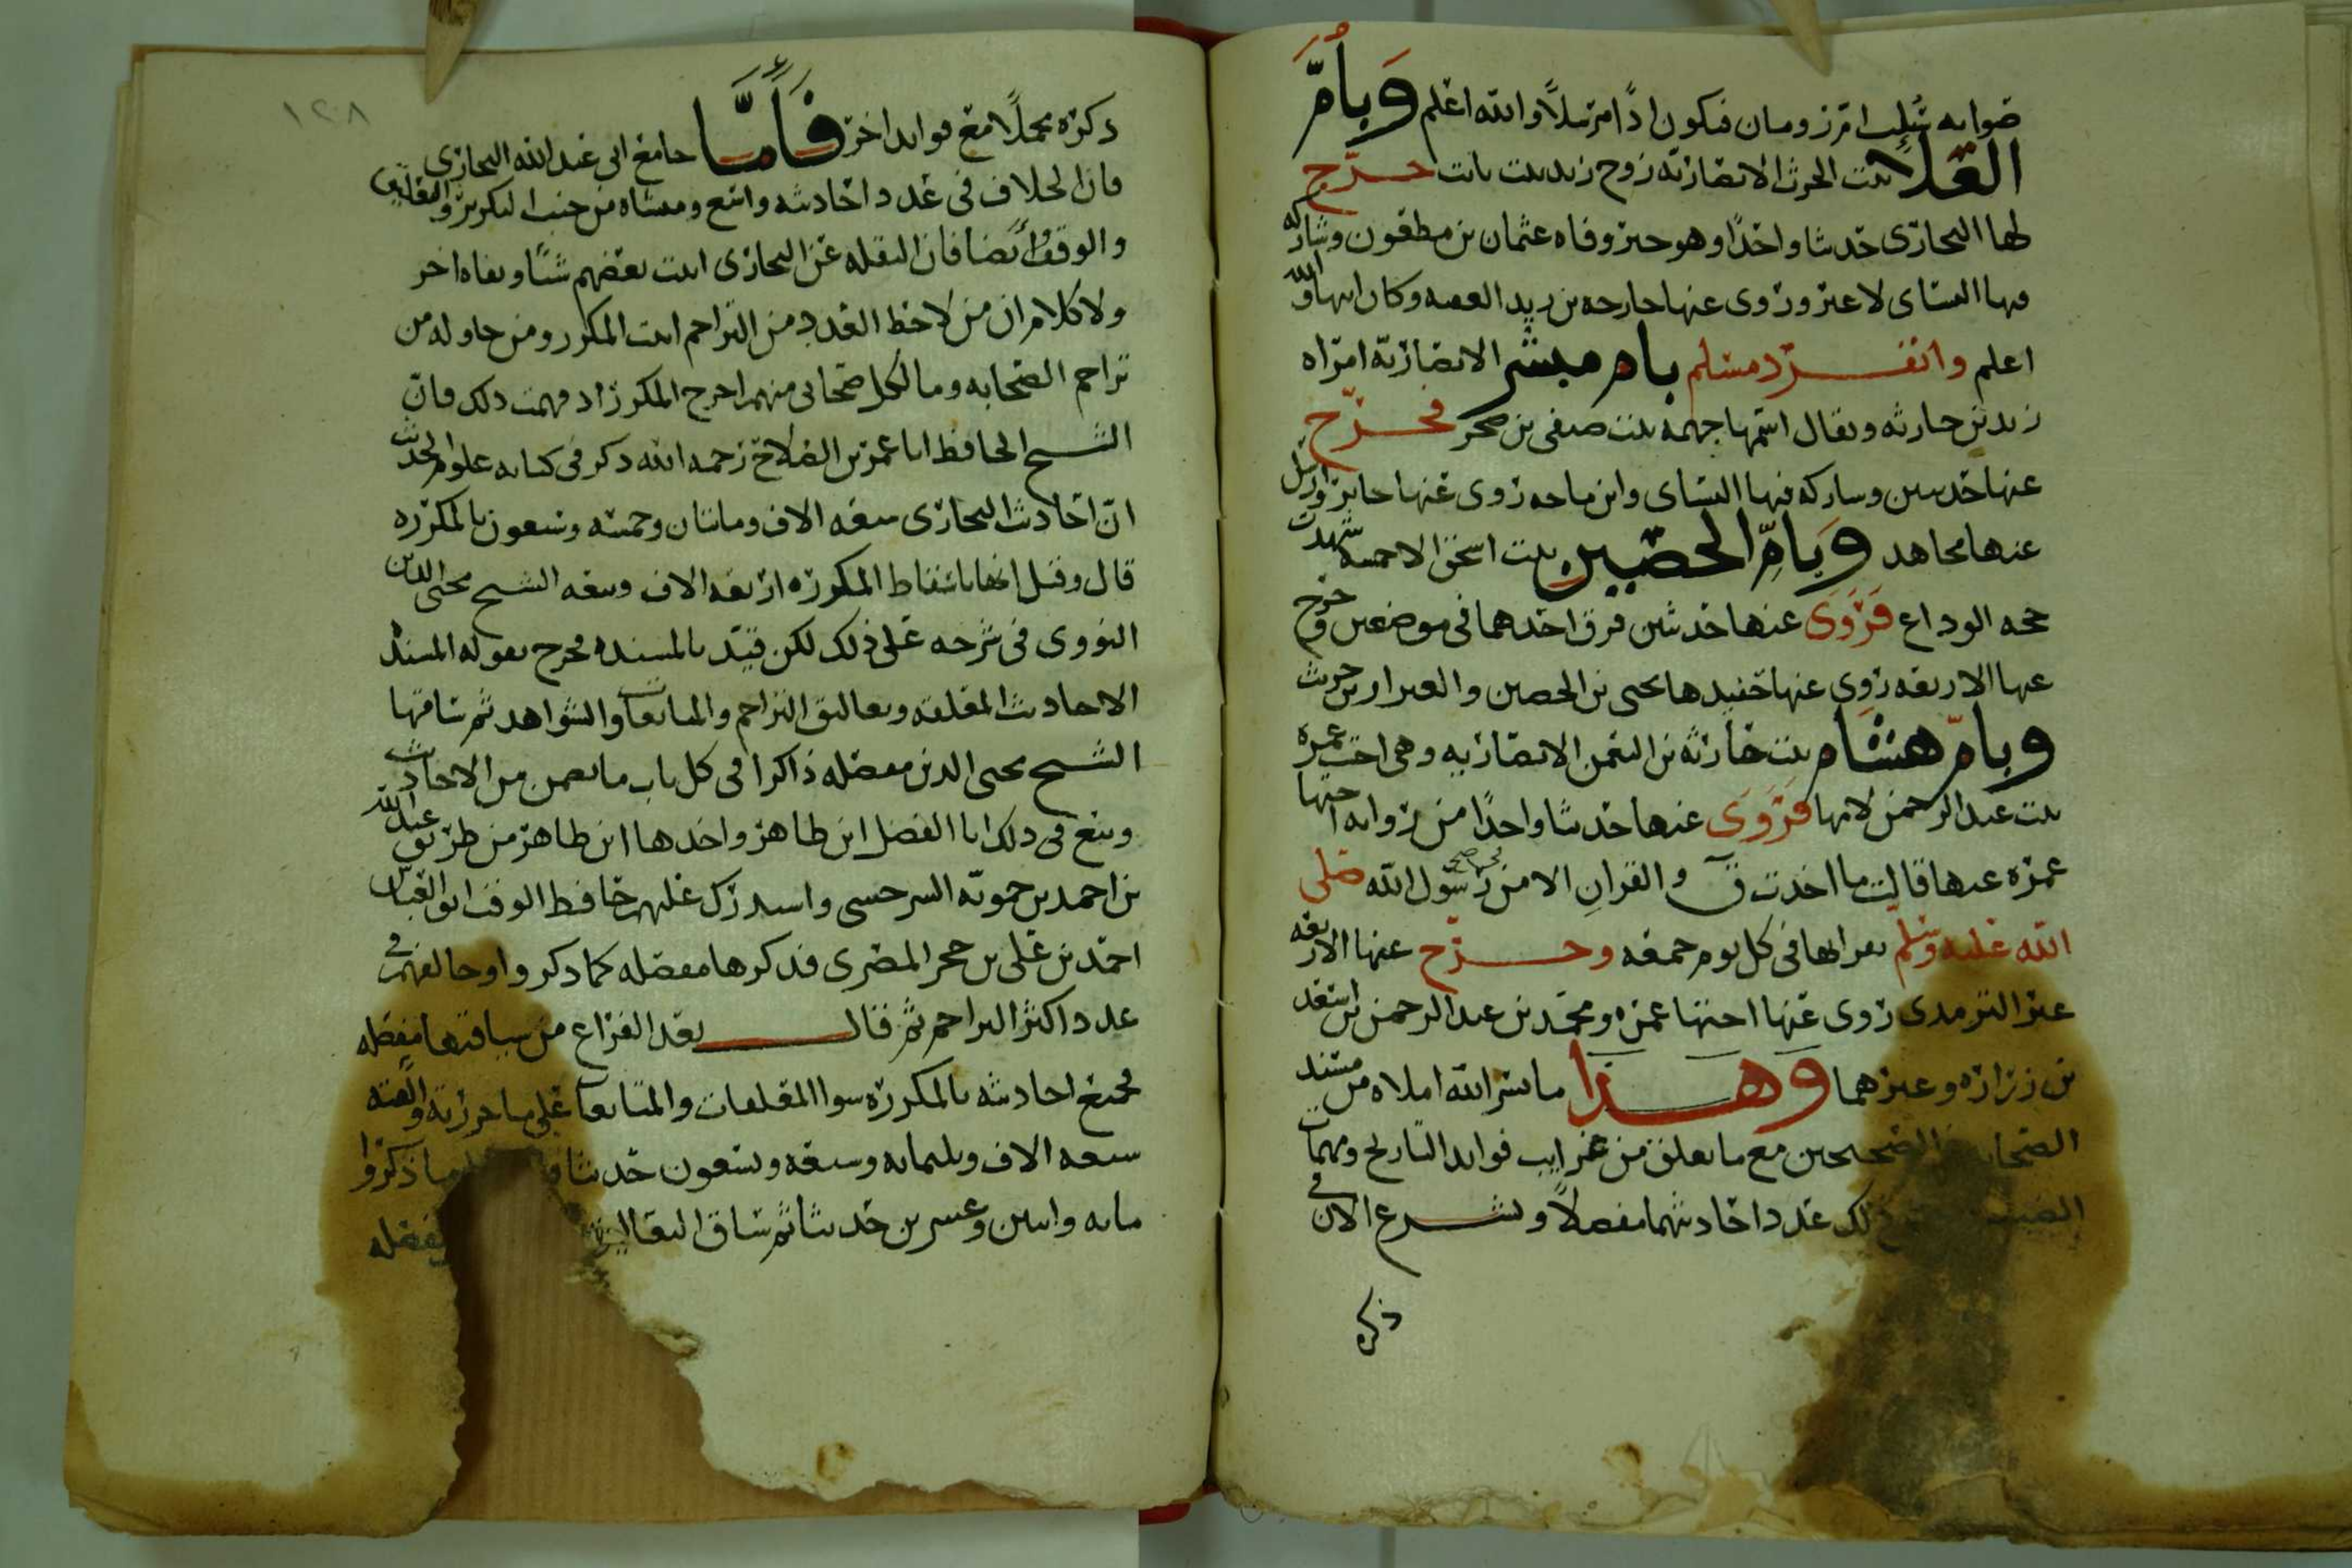 صوابه سُئلت ام رومان فيكون اذًا مرسلًا والله اعلم وَبأُمّ
العَلَا بنت الحرث الانصاريّه زوج زيد بن ثابت خرّج
لها البخارى حديثا واحدًا وهو حين وفاه عثمان بن مظعون وشاركه
فيها النساى لا غير وروى عنها خارجه بن زيد الفقيه وكان ابنها والله
اعلم وانفرد مسلم بام مبشر الانصاريّه امراه
زيد بن حارثه ويقال اسمها جهمة بنت صيفى بن صخر فخرّج
عنها حديثين وشاركه فيها النساى وابن ماجه روى عنها جابر وارسل
عنها مجاهد وَبَامِّ الحصَين بنت اسحق الاحمسيه شهدت
حجه الوداع فَرَوَى عنها حديثين فرق احدهما فى موضعين وخرج
عنها الاربعه روى عنها حفيدها يحيى بن الحصين والعيزار بن حريث
وبامّ هشام بنت حارثه بن النعمن الانصاريه وهى اخت عمره
بنت عبد الرحمن لامها فَرَوَى عنها حديثا واحدًا من روايه اختها
عمره عنها قالت ما اخذت قٓ والقران الا من رسول الله صلى
الله عليه وسلم يقراها فى كل يوم جمعه وخرّج عنها الاربعه
غير الترمذى روى عنها اختها عمره ومحمد بن عبد الرحمن بن اسعد
بن زراره وغيرهما وهذا ما يسر الله املاه من مسند
الصحيحين مع ما تعلق من غرايب فوايد التاريخ ومهمات
ذلك عدد احاديثهما مفصلًا ونشرع الان فى
ذكره
١٢٨
ذكره مجملًا مع فوايد اخر فَأَمَّا جامع ابى عبد الله البخارى
فان الخلاف فى عدد احاديثه واسع ومنشاه من حيث التكرير والتعليق
والوقف ايضا فان النقله عن البخارى اثبت بعضهم شيًا ونفاه اخر
ولا كلام ان من لاحظ العدد من التراجم اثبت المكرر ومن حاوله من
تراجم الصحابه وما لكل صحابى منهم اخرج المكرر اذ فهمت ذلك فان
الشيخ الحافظ ابا عمرو بن الصلاح رحمه الله ذكر فى كتابه علوم الحديث
انّ احاديث البخارى سبعه الاف ومايتان وخمسه وسبعون بالمكرره
قال وقيل انها باسقاط المكرره اربعه الاف وتبعه الشيخ محيى الدين
النووى فى شرحه على ذلك لكن قيّد بالمسنده فخرج بقوله المسنده
الاحاديث المعلقه وتعاليق التراجم والمتابعات والشواهد ثم ساقها
الشيخ محيى الدين مفصله ذاكرا فى كل باب ما تضمن من الاحاديث
وتبع فى ذلك ابا الفضل ابن طاهر واخذها ابن طاهر من طريق عبد الله
بن احمد بن حمويّه السرخسى واستدرك عليهم حافظ الوقت ابو العباس
احمد بن على بن حجر المصرى فذكرها مفصله كما ذكروا وخالفهم فى
عدد اكثر التراجم ثم قال بعد الفراغ من سياقتها مفصله
فجميع احاديثه بالمكرره سوا المعلقات والمتابعات على ما حررته واتقنته
سبعه الاف وثلثمايه وسبعه وتسعون حديثا ما ذكروا
مايه واثنين وعشرين حديثا ثم ساق التعاليق مفصله